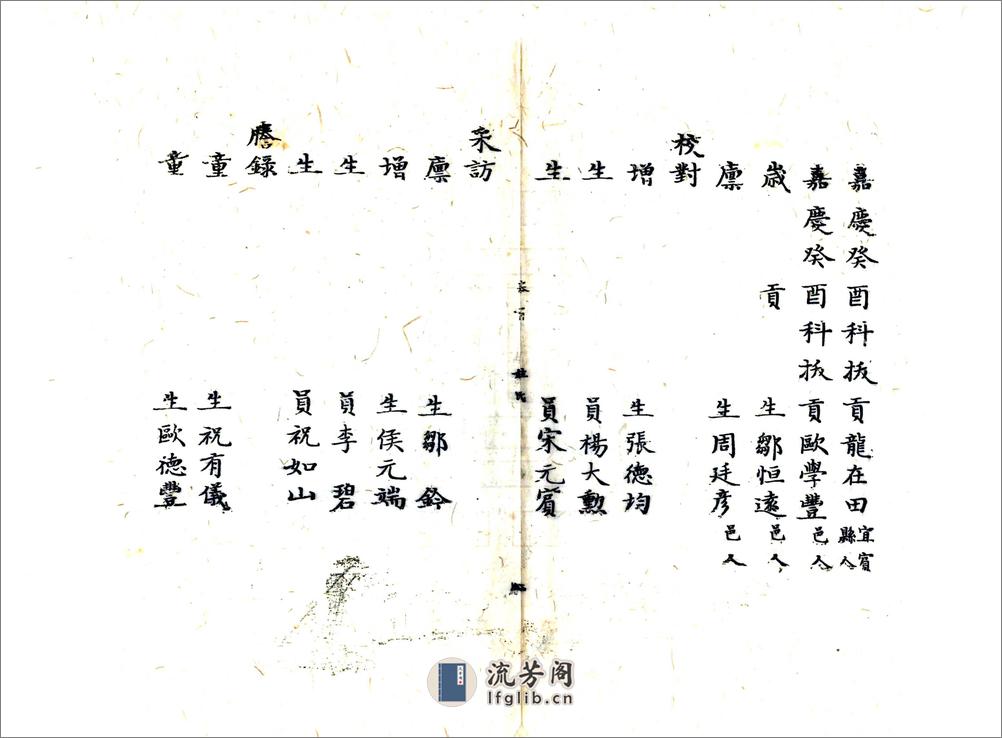 嘉慶癸酉科拔貢龍在田宜賓縣人
嘉慶癸酉科拔貢歐學豐邑人
歲貢生鄒恒遠邑人
廩生周廷彥邑人
校對
增生張德均
生員楊大勲
生員宋元賓
采訪
廩生鄒鈴
增生侯元端
生員李碧
生員祝如山
謄録
童生祝有儀
童生歐德豐
流芳阁
lfglib.cn